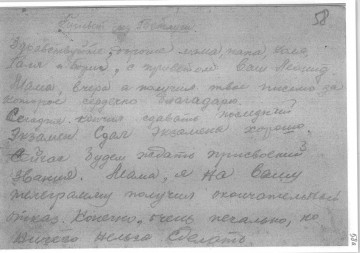 58
Привет из
Здравствуйте дорогие мама, папа Коля
Галя и Боря, с приветом Ваш Леонид
Мама, вчера я получил твое письмо за
которое сердечно благодарю.
Сегодня кончил сдавать последний
Экзамен Сдал Экзамены хорошо,
будем ждать присвоений
звания. Мама, я на Вашу
телеграмму получил окончательный
отказ. Конечно, очень печально, но
ничего нельзя сделать.